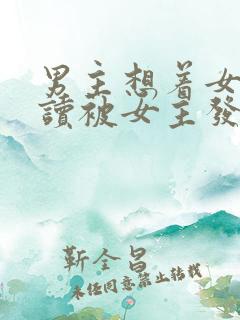 男主想着女
讀被女主發
靳全昌
未任同意禁止转载